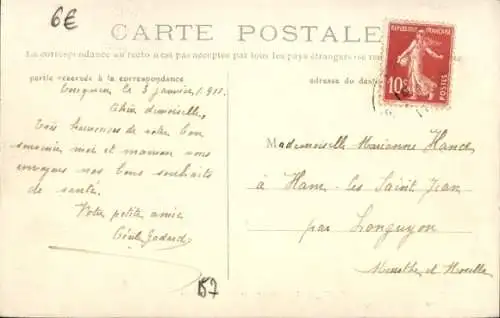 6€
CARTE POSTALE
La correspondance au recto n'est pas acceptée par tous les pays étrangers
partie réservée à la correspondance
adresse du dest
REPUBLIQUE FRANÇAISE
10c
POSTES
le 3 janvier 1910.
Chère demoiselle,
Très heureuses de votre bon
souvenir moi et maman vous
envoyons nos bons souhaits
de santé.
Votre petite amie
Cécile Godard
Mademoiselle Marianne Hand
à Ham-les Saint Jean
par Longuyon
Meurthe et Moselle
157